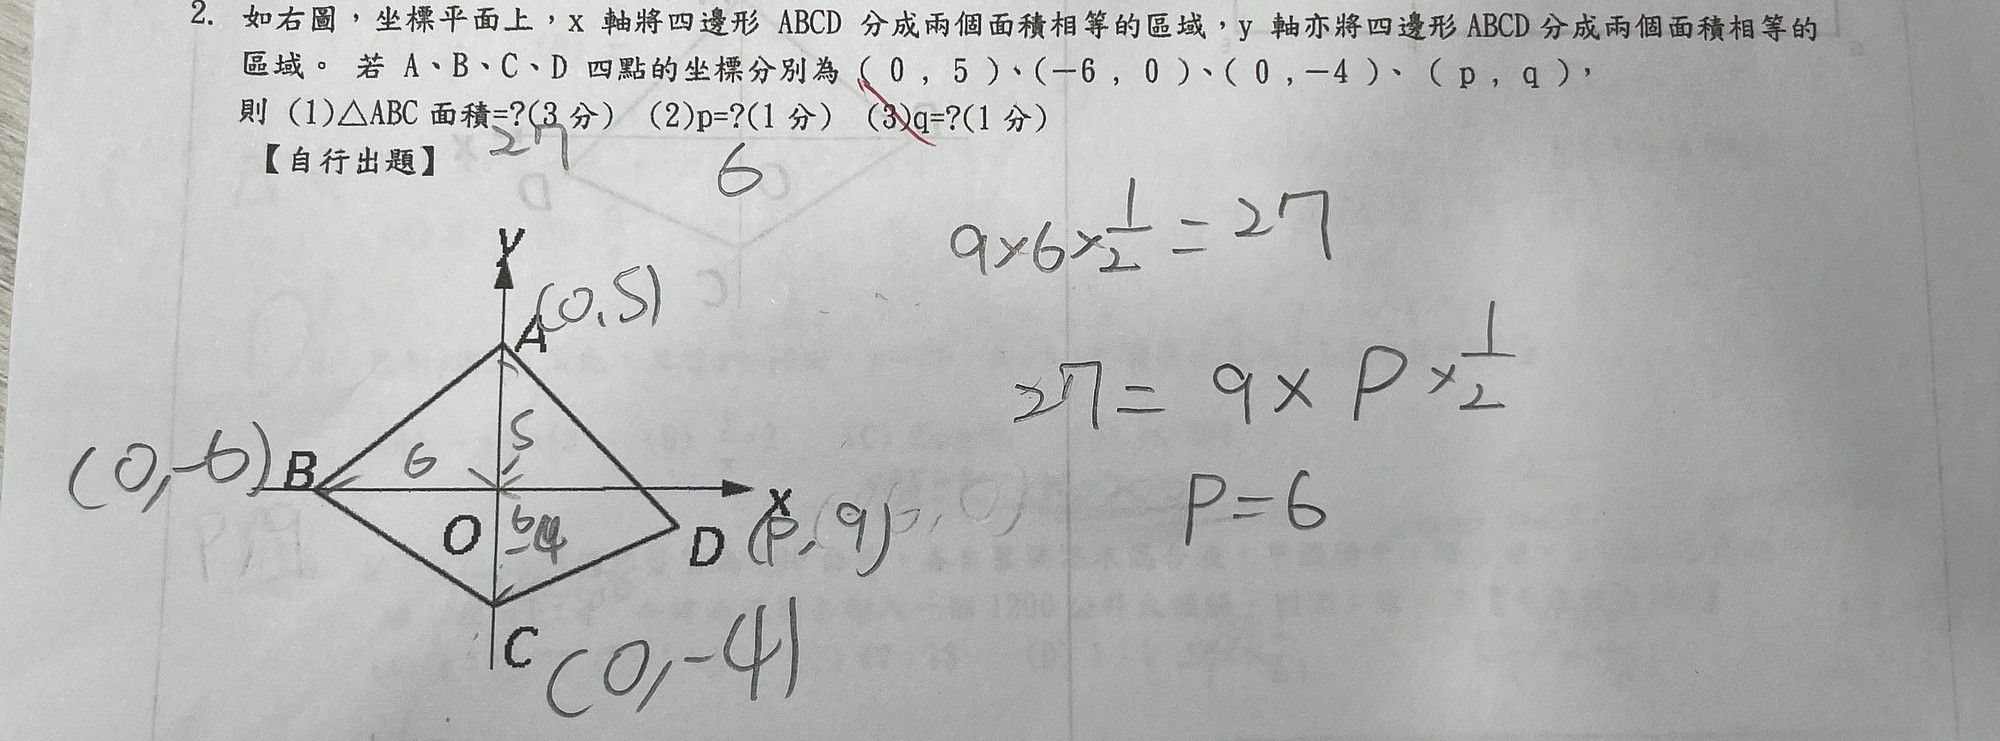 2. 如右圖，坐標平面上，x 軸將四邊形 ABCD 分成兩個面積相等的區域，y 軸亦將四邊形 ABCD 分成兩個面積相等的
區域。 若 A、B、C、D 四點的坐標分別為 ( 0 , 5 )、(-6 , 0 )、( 0 ,-4 )、 ( p , q )，
則 (1)△ABC 面積=?(3 分) (2)p=?(1 分) (3)q=?(1 分)
【自行出題】 27 6
9×6×1/2=27
y
A(0,5)
27= 9× P ×1/2
5
(0,-6) B 6
x
P=6
O -4 D (P, q)
C (0,-4)